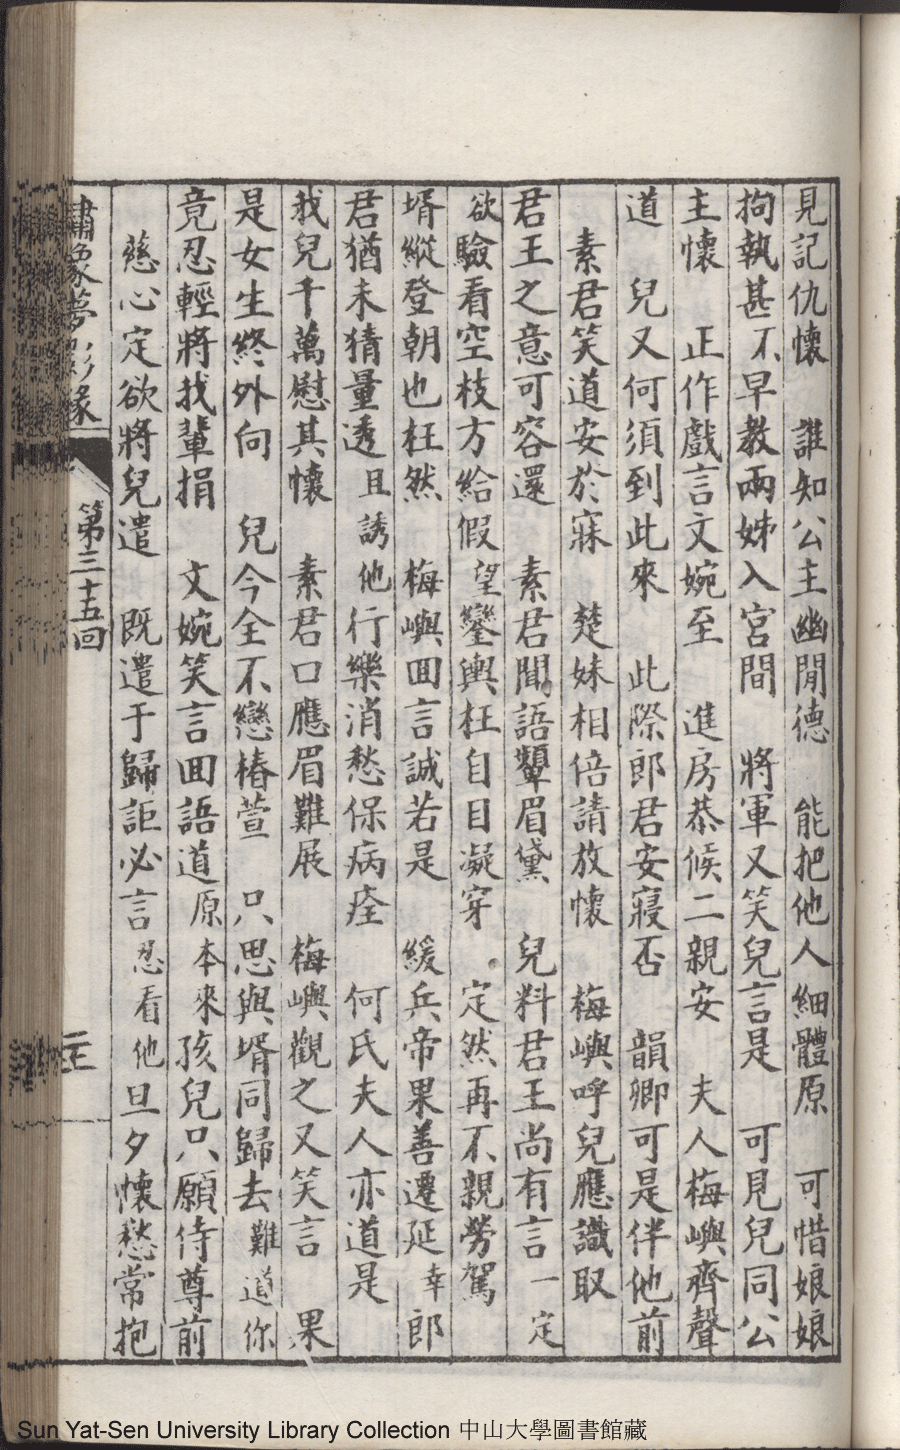 見記仇懷　誰知公主幽閒德　能把他人細體原　可惜娘娘
拘執甚　不早教兩姊入宮間　將軍又笑兒言是　可見兒同公
主懷　正作戲言文婉至　進房恭候二親安　夫人梅嶼齊聲
道　兒又何須到此來　此際郎君安寢否　韻卿可是伴他前
素君笑道安於寐　楚妹相倍請放懷　梅嶼呼兒應識取
君王之意可容還　素君聞語顰眉黛　兒料君王尚有言　一定
欲驗看空枝方給假　望鑾輿枉自目凝穿　定然再不親勞駕
壻縱登朝也枉然　梅嶼回言誠若是　緩兵帝果善遷延　幸郎
君猶未猜量透　且誘他行樂消愁保病痊　何氏夫人亦道是
我兒千萬慰其懷　素君口應眉難展　梅嶼觀之又笑言　果
是女生終外向　兒今全不戀椿萱　只思與壻同歸去　難道你
竟忍輕將我輩捐　文婉笑言囬語道　原本來孩兒只願侍尊前
慈心定欲將兒遣　既遣于歸詎必言　忍看他旦夕懷愁常抱
夢影緣
第三十五回
Sun Yat-Sen University Library Collection 中山大學圖書館藏